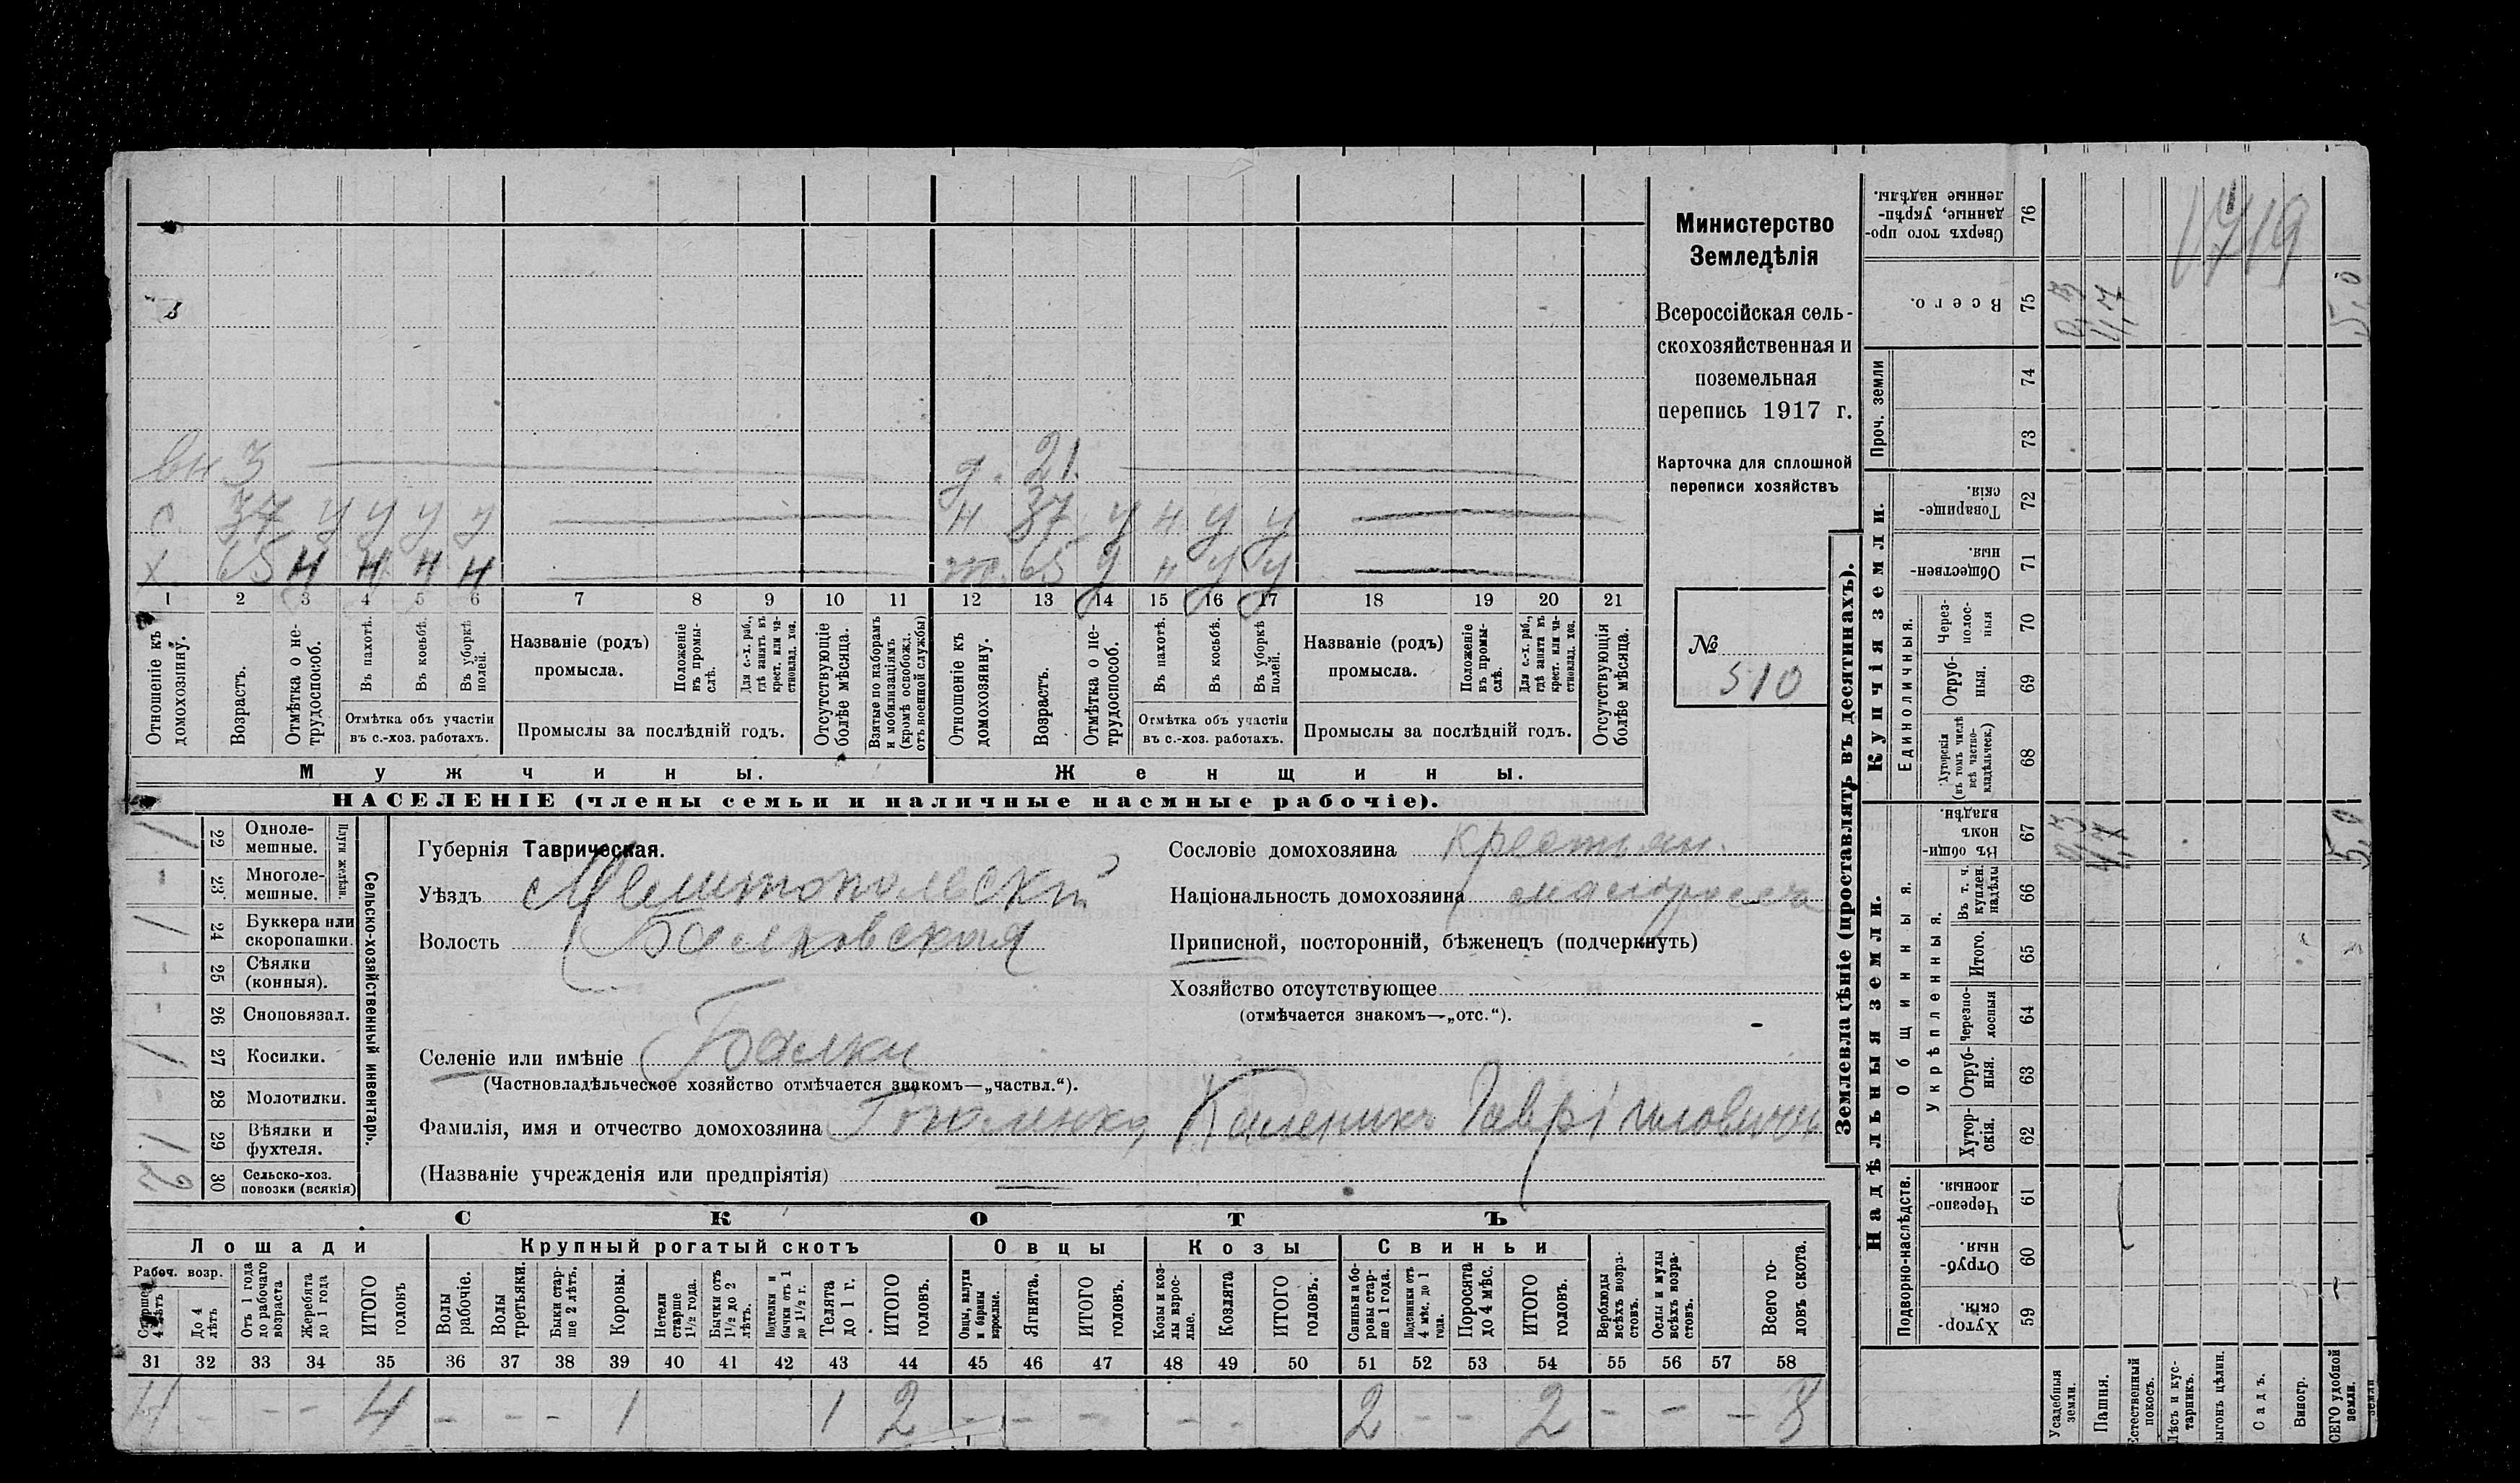 Министерство
Земледѣлія
Всероссійская сель-
скохозяйственная и
поземельная
перепись 1917 г.
Карточка для сплошной
переписи хозяйствъ
№
510
вн 3
д. 21.
с 37 у у у у
н 37 у н у у
х 65 н н н н
65 н у у
1 2 3 4 5 6 7 8 9 10 11 12 13 14 15 16 17 18 19 20 21
Отношеніе къ домохозяину.
Возрастъ.
Отмѣтка о не-трудоспособ.
Въ пахотѣ.
Въ косьбѣ.
Въ уборкѣ полей.
Отмѣтка объ участіи
въ с.-хоз. работахъ.
Названіе (родъ)
промысла.
Положеніе въ промы-слѣ.
Для с.-х. раб., гдѣ занятъ въ крест. или ча-стновлад. хоз.
Промыслы за послѣдній годъ.
Отсутствующіе болѣе мѣсяца.
Взятые по наборамъ и мобилизаціямъ (кромѣ освобожд. отъ военной службы)
Отношеніе къ домохозяину.
Возрастъ.
Отмѣтка о не-трудоспособ.
Въ пахотѣ.
Въ косьбѣ.
Въ уборкѣ полей.
Отмѣтка объ участіи
въ с.-хоз. работахъ.
Названіе (родъ)
промысла.
Положеніе въ промы-слѣ.
Для с.-х. раб., гдѣ занята въ крест. или ча-стновлад. хоз.
Промыслы за послѣдній годъ.
Отсутствующія болѣе мѣсяца.
Мужчины.
Женщины.
НАСЕЛЕНІЕ (члены семьи и наличные наемные рабочіе).
Сельско-хозяйственный инвентарь.
Плуги желѣзн.
1 22 Одноле-мешные.
- 23 Многоле-мешные.
1 24 Буккера или скоропашки.
- 25 Сѣялки (конныя).
- 26 Сноповязал.
1 27 Косилки.
- 28 Молотилки.
1 29 Вѣялки и фухтеля.
30 Сельско-хоз. повозки (всякія)
Губернія Таврическая.
Уѣздъ Мелитопольскій
Волость Балковская
Селеніе или имѣніе Балки
(Частновладѣльческое хозяйство отмѣчается знакомъ—„частвл.“).
Фамилія, имя и отчество домохозяина Каленикъ Гавріиловичъ
(Названіе учрежденія или предпріятія)
Сословіе домохозяина крестьян.
Національность домохозяина малоросса
Приписной, посторонній, бѣженецъ (подчеркнуть)
Хозяйство отсутствующее
(отмѣчается знакомъ—„отс.“).
СКОТЪ
Лошади
Крупный рогатый скотъ
Овцы
Козы
Свиньи
Рабоч. возр.
Старше 4 лѣтъ
До 4 лѣтъ
Отъ 1 года до рабочаго возраста
Жеребята до 1 года
ИТОГО головъ
Волы рабочіе.
Волы третьяки.
Быки стар-ше 2 лѣтъ.
Коровы.
Нетели старше 1 1/2 года.
Бычки отъ 1 1/2 до 2 лѣтъ.
Подтелки и бычки отъ 1 до 1 1/2 г.
Телята до 1 г.
ИТОГО головъ.
Овцы, валухи и бараны взрослые.
Ягнята.
ИТОГО головъ.
Козы и коз-лы взрос-лые.
Козлята
ИТОГО головъ.
Свиньи и бо-ровы стар-ше 1 года.
Подсвинки отъ 4 мѣс. до 1 года.
Поросята до 4 мѣс.
ИТОГО головъ.
Верблюды всѣхъ возра-стовъ.
Ослы и мулы всѣхъ возра-стовъ.
Всего го-ловъ скота.
31 32 33 34 35 36 37 38 39 40 41 42 43 44 45 46 47 48 49 50 51 52 53 54 55 56 57 58
4 - - - 4 - - - 1 1 2 - - - - - 2 - - 2 - - - 8
Землевладѣніе (проставлять въ десятинахъ).
Надѣльныя земли.
Купчія земли.
Проч. земли
Подворно-наслѣдств.
Общинныя.
Укрѣпленныя.
Единоличныя.
Хутор-скія. 59
Отруб-ныя. 60
Черезпо-лосныя. 61
Хутор-скія. 62
Отруб-ныя. 63
Черезпо-лосныя 64
Итого. 65
Въ т. ч. куплен. надѣлы 66
Въ общи-номъ владѣн. 67
Хуторскія (въ томъ числѣ всѣ частно-владѣльческ.) 68
Отруб-ныя. 69
Через-полос-ныя 70
Обществен-ныя. 71
Товарище-скія. 72
73
74
Всего. 75
Сверхъ того про-данные, укрѣп-ленные надѣлы. 76
Усадебныя земли.
0,3 0,3
Пашня.
4,7 4,7
Естественный покосъ.
Лѣсъ и кус-тарникъ.
Выгонъ цѣлин.
Садъ.
Виногр.
ВСЕГО удобной земли.
5,0 5,0
1719